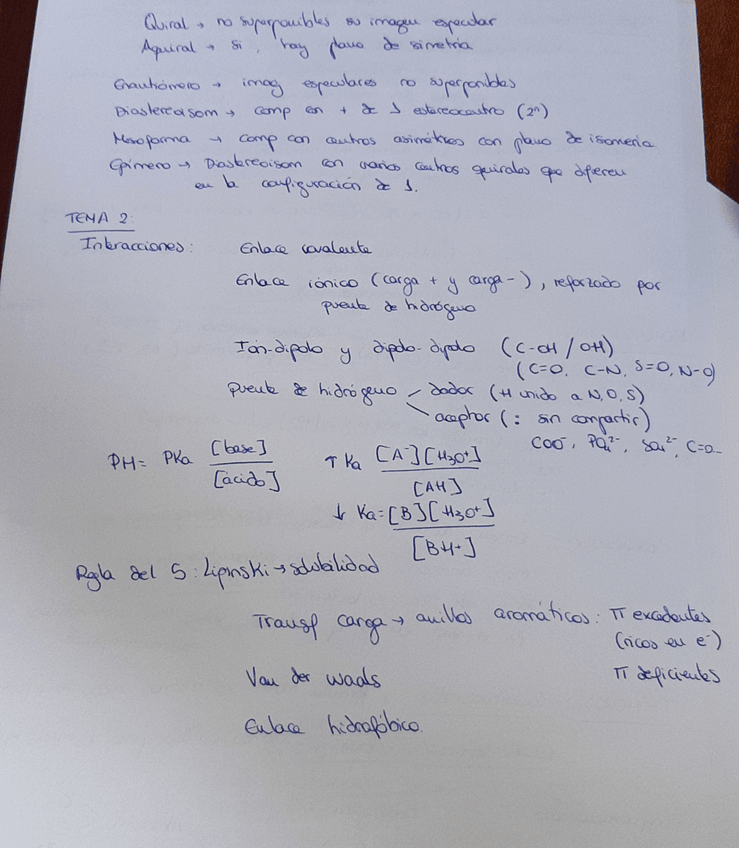 Quiral → no superponibles su imagen especular
Aquiral → si, hay plano de simetría
Enantiómero → imag especulares no superponibles
Diastereoisom → comp en + de 1 estereocentro (2ⁿ)
Mesoforma → comp con centros asimétricos con plano de isomería
Epímero → Diastereoisom con varios centros quirales que difieren
en la configuración de 1.
TEMA 2:
Interacciones: Enlace covalente
Enlace iónico (carga + y carga -), reforzado por
puente de hidrógeno
Ión-dipolo y dipolo-dipolo (C-OH / OH)
(C=O, C-N, S=O, N-O)
puente de hidrógeno - dador (H unido a N, O, S)
aceptor (: sin compartir)
COO⁻, PO₄²⁻, SO₄²⁻, C=O...
PH = PKa [base] / [ácido] ↑ Ka [A⁻][H₃O⁺] / [AH]
↓ Ka = [B][H₃O⁺] / [BH+]
Regla del 5: Lipinski → solubilidad
Transf carga → anillos aromáticos: π excedentes
(ricos en e⁻)
Van der waals π deficientes
Enlace hidrofóbico.